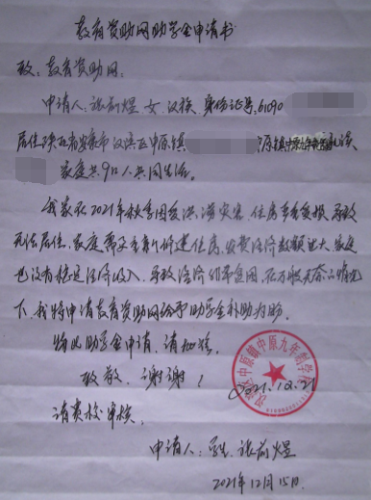 教育资助网助学金申请书
致：教育资助网：
申请人：张前煜 女 汉族 身份证号:61090
居住陕西省安康市汉滨区中原镇
家庭共9口人共同生活。
我家在2021年秋季因受洪涝灾害，住房严重受损，导致
无法居住，家庭需要重新修建住房，安置经济数额巨大，家庭
也没有稳定经济收入，导致经济非常困难，在万般无奈的情况
下，我特申请教育资助网给予助学金补助为盼
特此助学金申请，请批核。
致敬，谢谢！
2021.12.21
请贵校审核。
申请人：学生 张前煜
2021年12月15日